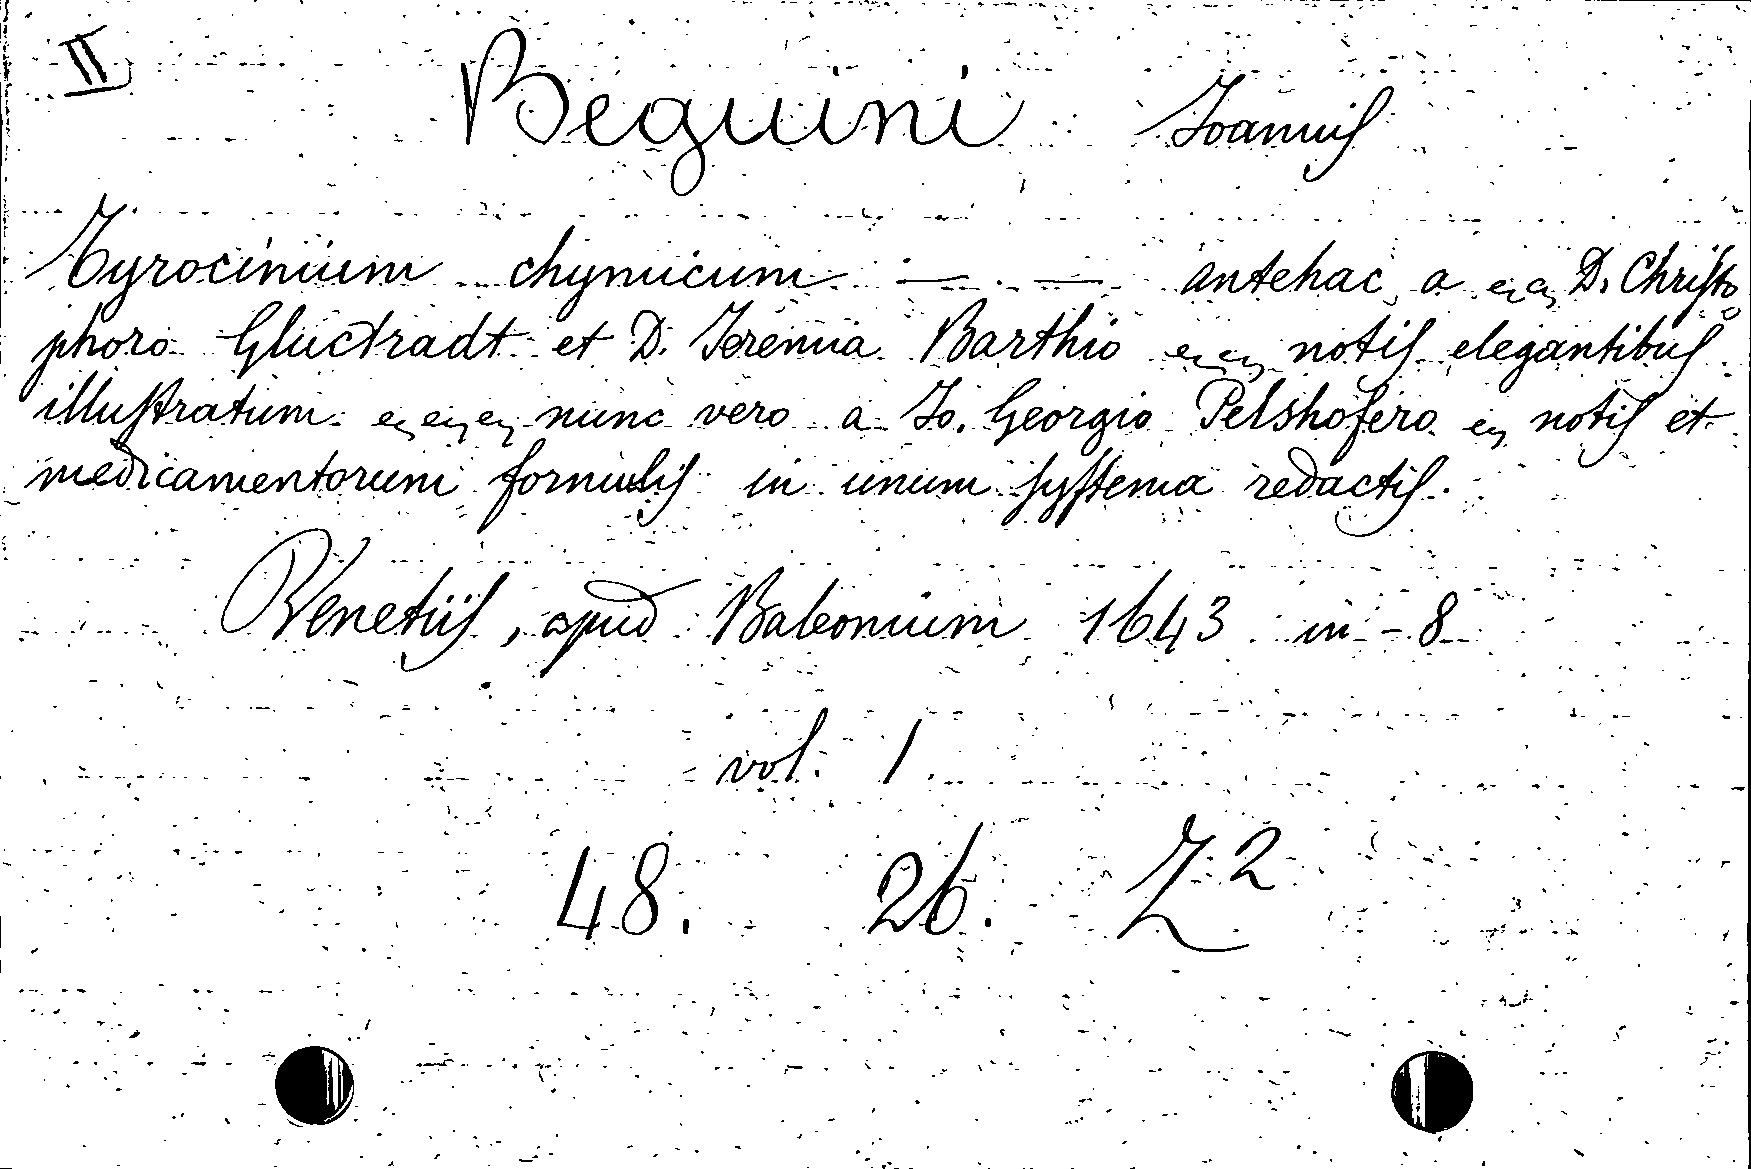 II
Beguini Joannis
Tyrocinium chymicum — . — antehac a D. Christo
phoro Glückradt et D. Jeremia Barthio notis elegantibus
illustratum nunc vero a Jo. Georgio Pelshofero notis et
medicamentorum formulis in unum systema redactis.
Venetiis, apud Baleonium 1643 in - 8
vol. 1
48. 26. Z²